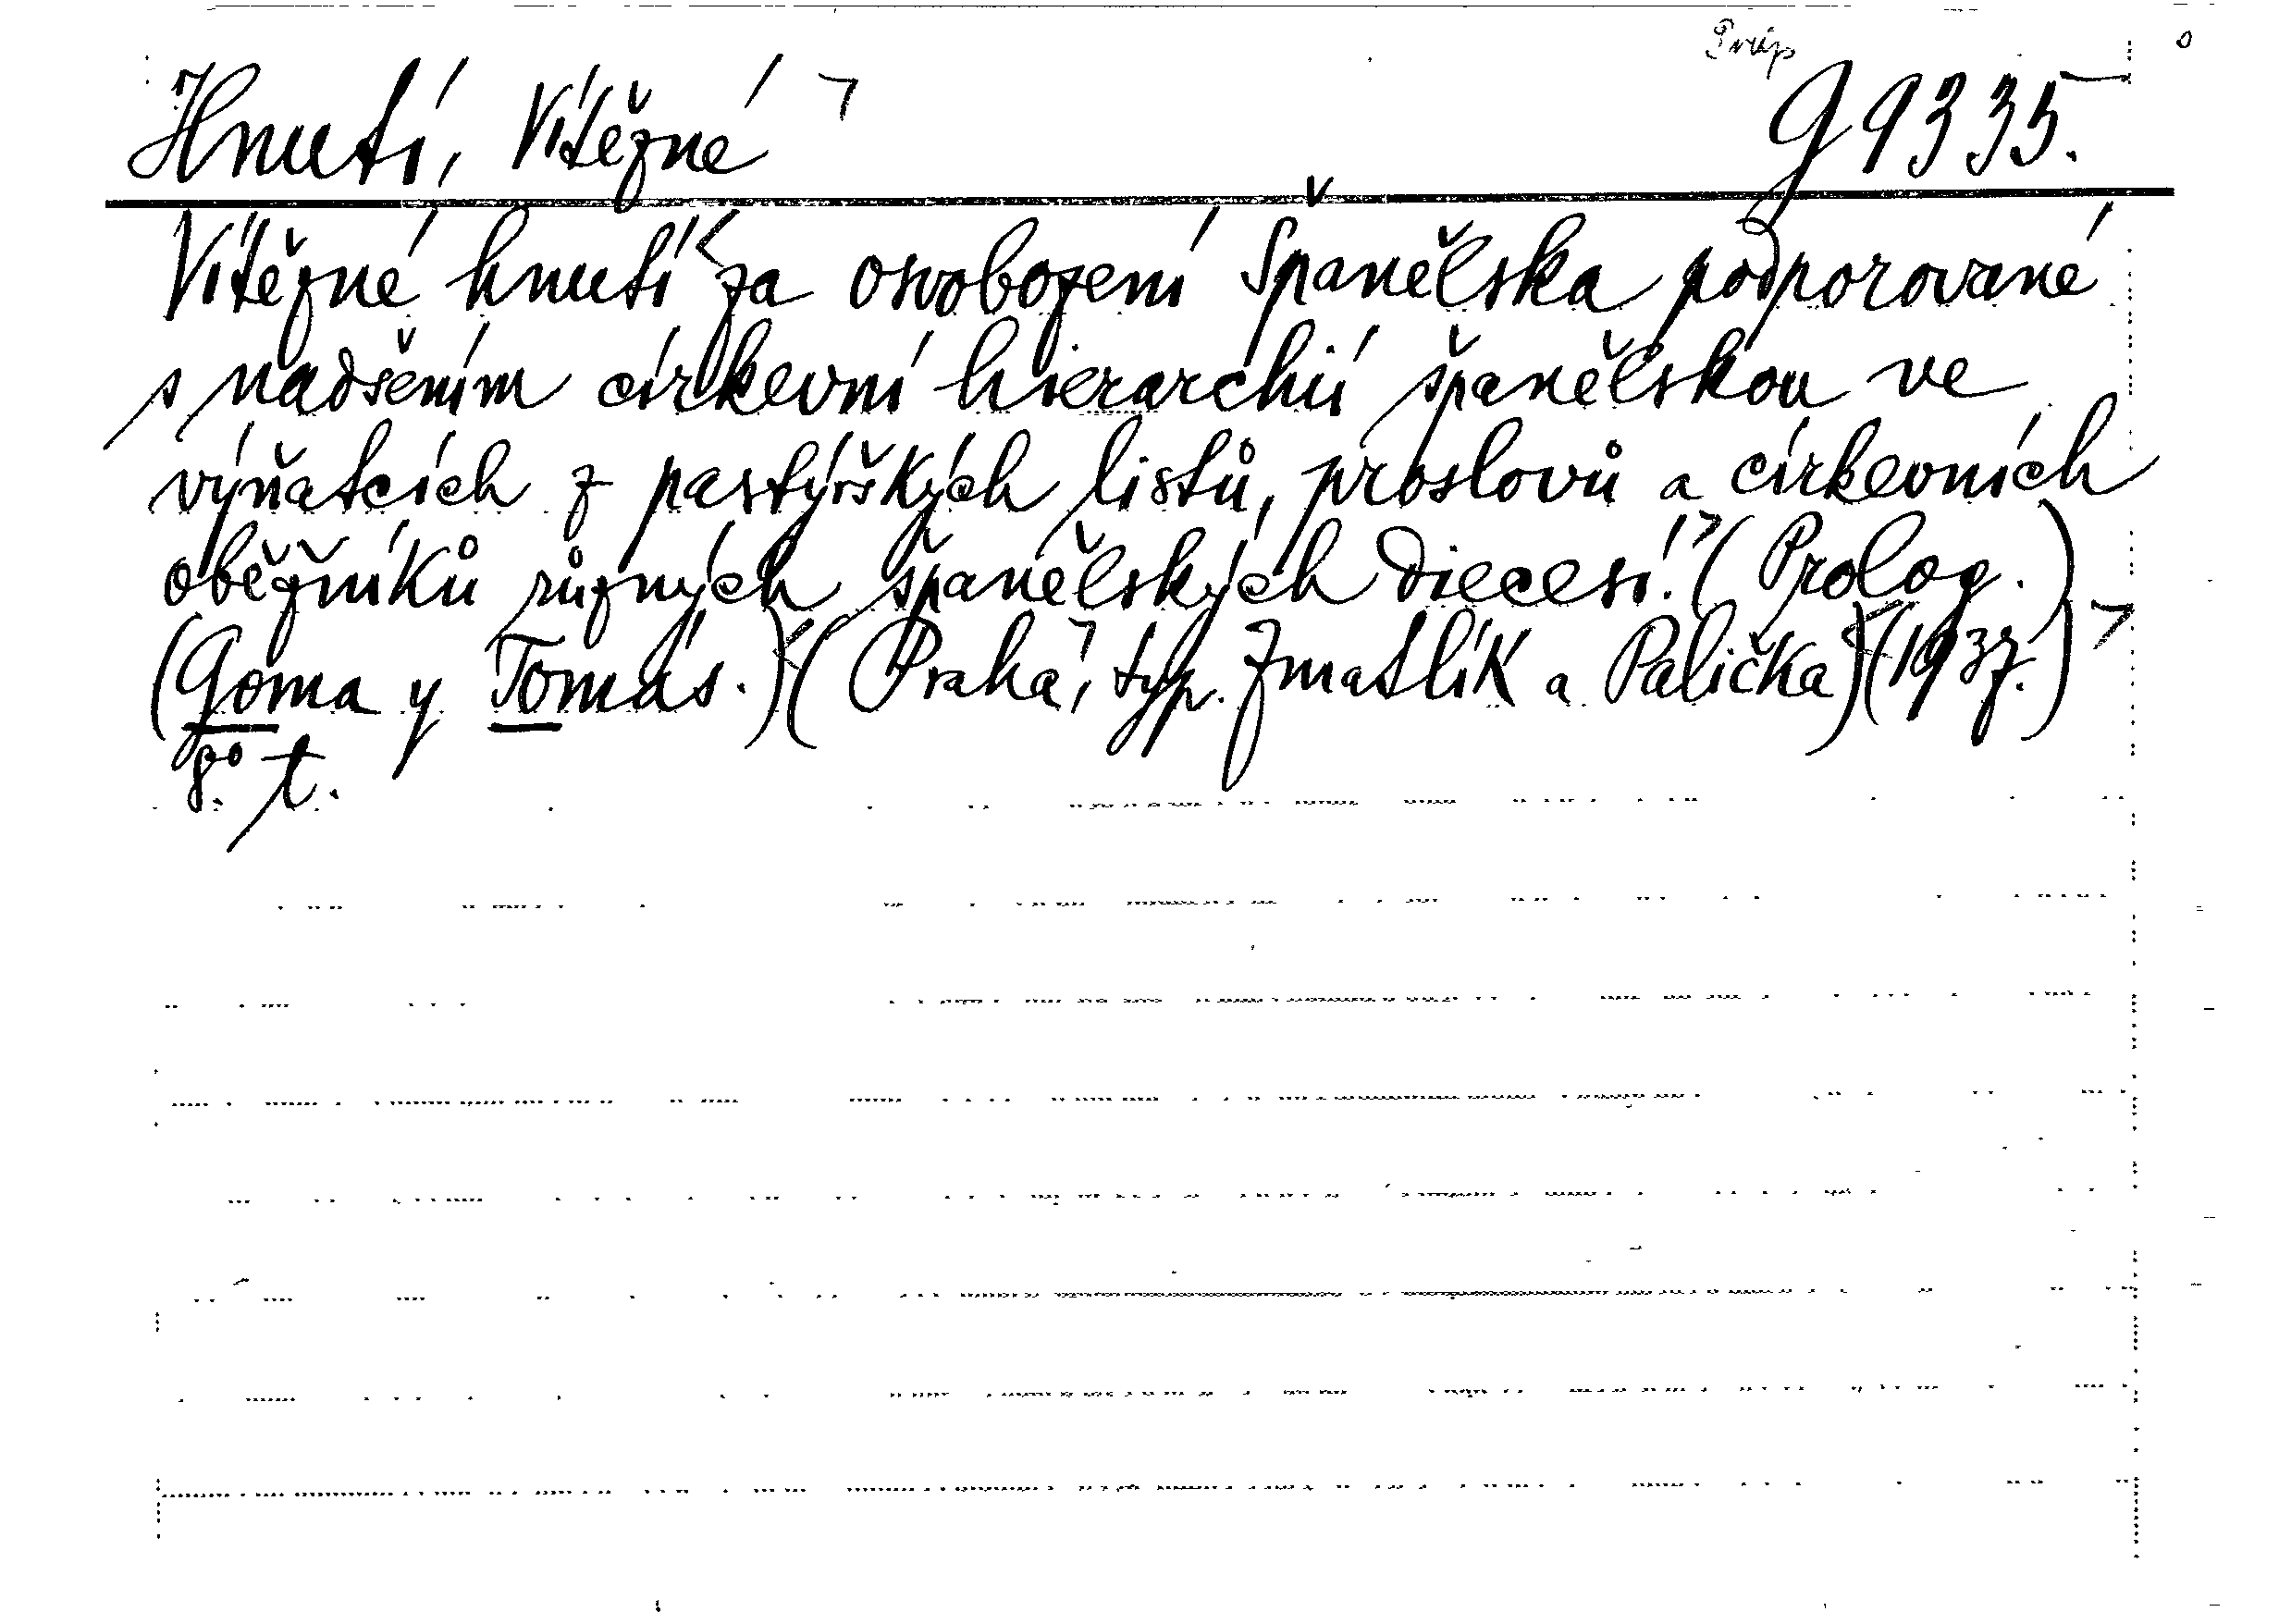 Hnutí, Vítězné
G 9335.
Vítězné hnutí za osvobození Španělska podporované
s nadšením církevní hierarchií španělskou ve
výňatcích z pastýřských listů, proslovů a církevních
oběžníků různých španělských diecesí. (Prolog.)
(Goma y Tomás.) (Praha, typ. Zmatlík a Palička) (1937.)
8° t.